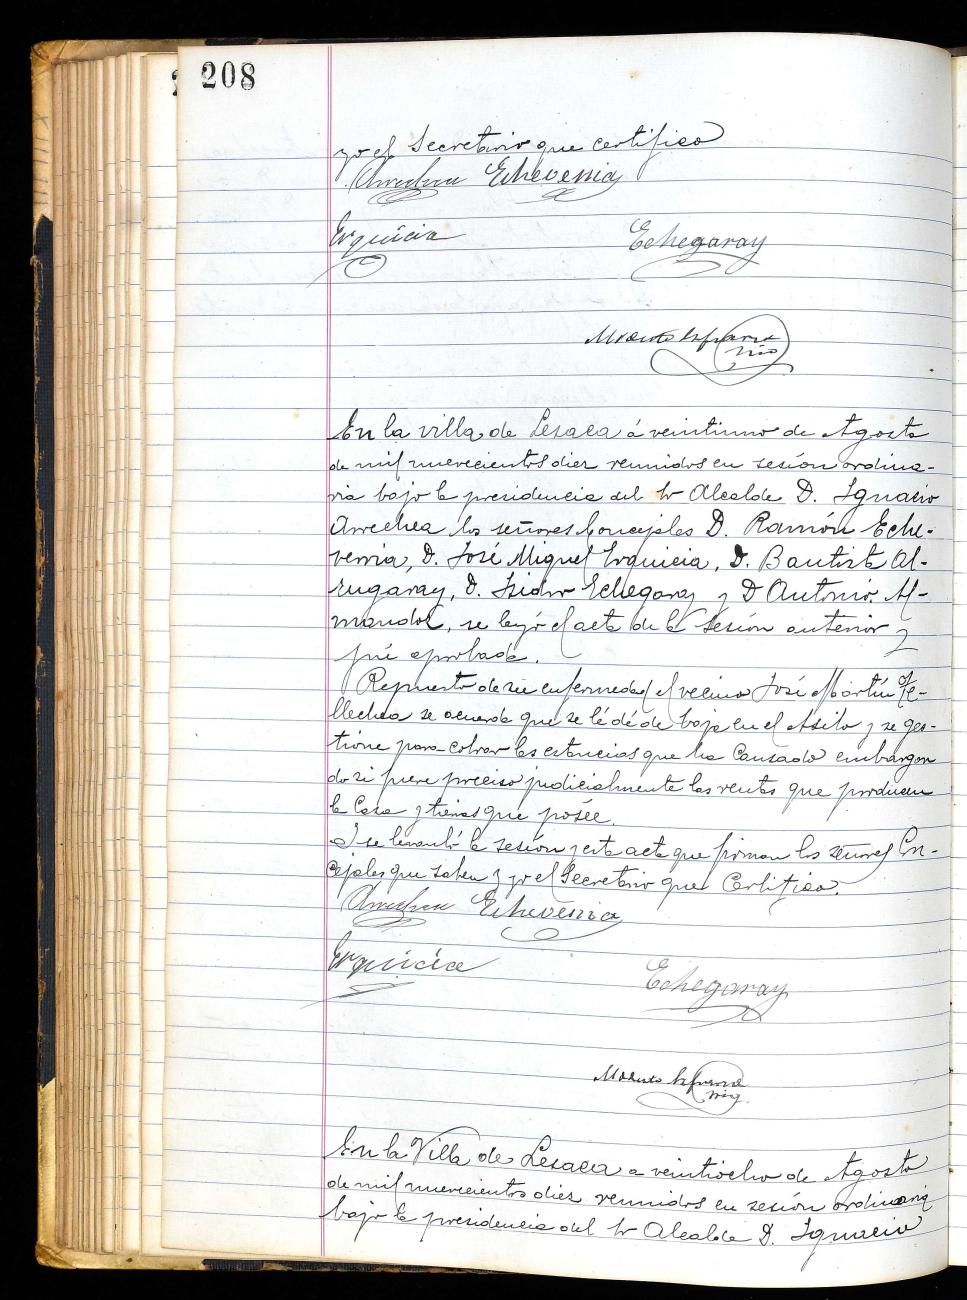 208
yo el Secretario que certifico
Arrechea Echeverria
Erquicia Echegaray
Modesto
En la villa de Lesaca á veintiuno de Agosto
de mil nuevecientos diez reunidos en sesión ordina-
ria bajo la presidencia del Sr Alcalde D. Ignacio
Arrechea los señores Concejales D. Ramón Eche-
verria, D. José Miguel Erquicia, D. Bautista Al-
zugaray, D. Isidro Echegaray y D Antonio Al-
mandoz, se leyó el acta de la Sesión anterior y
fué aprobada.
Repuesto de su enfermedad el vecino José Martín Te-
llechea se acuerda que se lé dé de baja en el Asilo y se ges-
tione para cobrar las estancias que ha Causado embargan
do si fuere preciso judicialmente las rentas que producen
la Casa y tierras que posée.
Y se levantó la sesión y esta acta que firman los señores Con-
cejales que saben y yo el Secretario que Certifico.
Arrechea Echeverria
Erquicia Echegaray
Modesto
En la Villa de Lesaca a veintiocho de Agosto
de mil nuevecientos diez reunidos en sesión ordinaria
bajo la presidencia del Sr Alcalde D. Ignacio